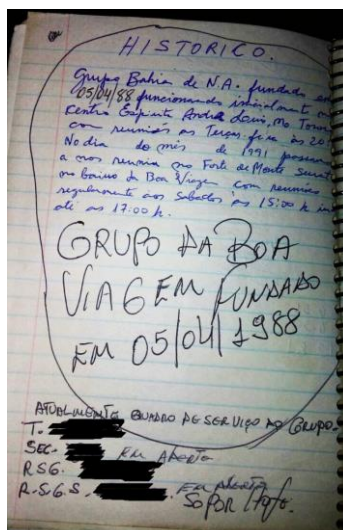 HISTORICO.
Grupo Bahia de N.A. fundado em
05/04/88 funcionando inicialmente no
Centro Espirita André Luiz, no
com reuniões as Terças-feira às 20
No dia do mês de 1991
a nos reunir no Forte de Monte Serrat
no bairro da Boa Viagem com reuniões
regularmente aos Sabados às 15:00 h
até as 17:00 h.
GRUPO DA BOA
VIAGEM FUNDADO
EM 05/04/1988
ATUALMENTE QUADRO DE SERVIÇO DO GRUPO.
T.
SEC. EM ABERTO
RSG.
R.S.G.S. EM ABERTO
SÓ POR